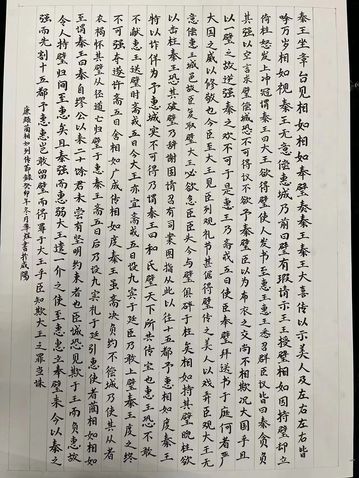 秦王坐章台见相如相如奉璧奏秦王秦王大喜传以示美人及左右左右皆
呼万岁相如视秦王无意偿赵城乃前曰璧有瑕请示王王授璧相如因持璧却立
倚柱怒发上冲冠谓秦王曰大王欲得璧使人发书至赵王赵王悉召群臣议皆曰秦贪负
其强以空言求璧偿城恐不可得议不欲予秦璧臣以为布衣之交尚不相欺况大国乎且
以一璧之故逆强秦之欢不可于是赵王乃斋戒五日使臣奉璧拜送书于庭何者严
大国之威以修敬也今臣至大王见臣列观礼节甚倨得璧传之美人以戏弄臣臣观大王无
意偿赵王城邑故臣复取璧大王必欲急臣臣头今与璧俱碎于柱矣相如持其璧睨柱欲
以击柱秦王恐其破璧乃辞谢固请召有司案图指从此以往十五都予赵相如度秦王
特以诈佯为予赵城实不可得乃谓秦王曰和氏璧天下所共传宝也赵王恐不敢
不献赵王送璧时斋戒五日今大王亦宜斋戒五日设九宾于廷臣乃敢上璧秦王度之终
不可强夺遂许斋五日舍相如广成传相如度秦王虽斋决负约不偿城乃使其从者
衣褐怀其璧从径道亡归璧于赵秦王斋五日后乃设九宾礼于廷引赵使者蔺相如相如
至谓秦王曰秦自缪公以来二十余君未尝有坚明约束者也臣诚恐见欺于王而负赵故
令人持璧归间至赵矣且秦强而赵弱大王遣一介之使至赵赵立奉璧来今以秦之
强而先割十五都予赵赵岂敢留璧而得罪于大王乎臣知欺大王之罪当诛
廉颇蔺相如列传节录癸卯年冬月书于咸阳